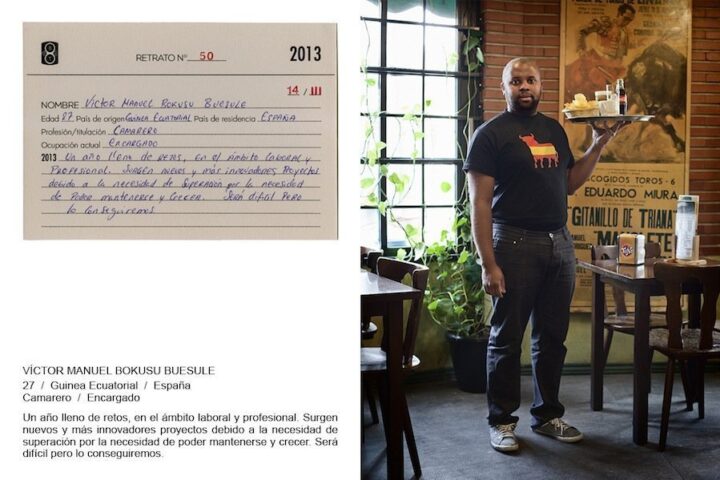 8
RETRATO Nº 50
2013
14 / III
NOMBRE VÍCTOR MANUEL BOKUSU BUESULE
Edad 27 País de origen GUINEA ECUATORIAL País de residencia ESPAÑA
Profesión/titulación CAMARERO
Ocupación actual ENCARGADO
2013 UN AÑO LLENO DE RETOS, EN EL ÁMBITO LABORAL Y
PROFESIONAL. SURGEN NUEVOS Y MÁS INNOVADORES PROYECTOS
DEBIDO A LA NECESIDAD DE SUPERACIÓN POR LA NECESIDAD
DE PODER MANTENERSE Y CRECER. SERÁ DIFICIL PERO
LO CONSEGUIREMOS
VÍCTOR MANUEL BOKUSU BUESULE
27 / Guinea Ecuatorial / España
Camarero / Encargado
Un año lleno de retos, en el ámbito laboral y profesional. Surgen
nuevos y más innovadores proyectos debido a la necesidad de
superación por la necesidad de poder mantenerse y crecer. Será
difícil pero lo conseguiremos.
ESCOGIDOS TOROS - 6
EDUARDO MIURA
GITANILLO DE TRIANA